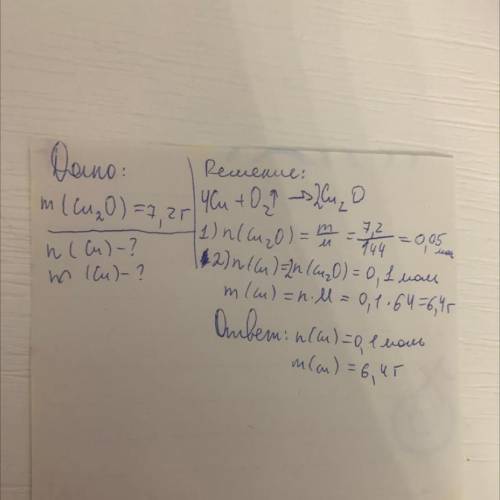 Дано:
m(Cu₂O) = 7,2 г
n(Cu) - ?
m(Cu) - ?
Решение:
4Cu + O₂↑ → 2Cu₂O
1) n(Cu₂O) = m/M = 7,2/144 = 0,05 моль
2) n(Cu) = 2n(Cu₂O) = 0,1 моль
m(Cu) = n · M = 0,1 · 64 = 6,4 г
Ответ: n(Cu) = 0,1 моль
m(Cu) = 6,4 г